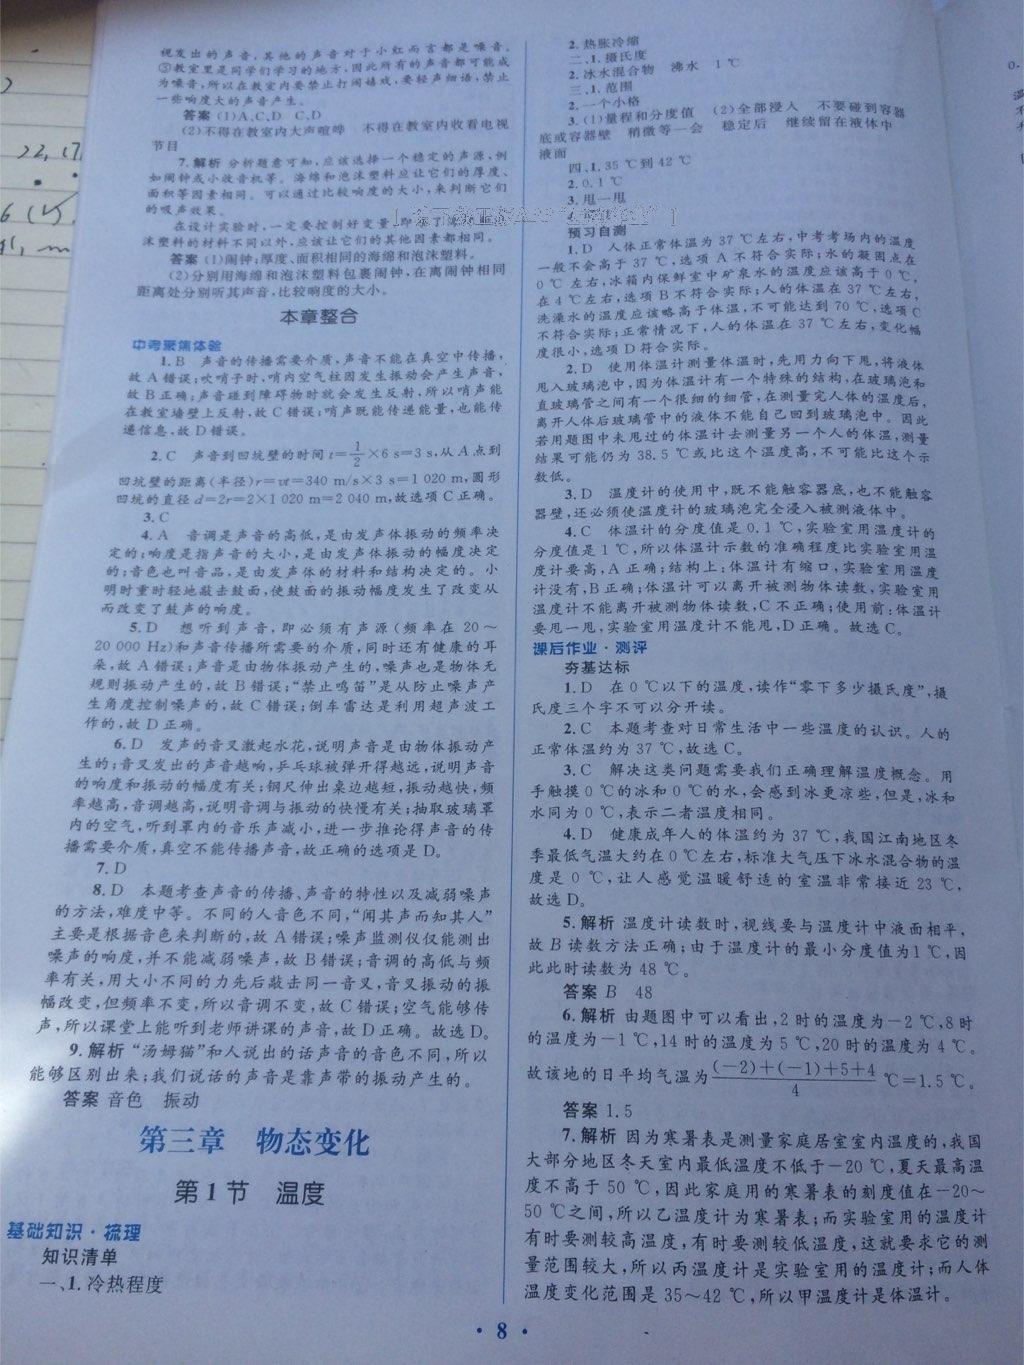 视发出的声音,其他的声音对于小红而言都是噪音。
③教室里是同学们学习的地方,因此所有的声音都可能成
为噪音,所以在教室内要禁止打闹嬉戏,要轻声细语,禁止
一些响度大的声音产生。
答案 (1)A、C、D C、D
(2)不得在教室内大声喧哗 不得在教室内收看电视
节目
7.解析 分析题意可知,应该选择一个稳定的声源,例
如闹钟或小收音机等。海绵和泡沫塑料应让它们的厚度、
面积等因素相同。可以通过比较响度的大小,来判断它们
的吸声效果。
在设计实验时,一定要控制好变量,即除了海绵和泡
沫塑料的材料不同以外,应该让它们的其他因素都相同。
答案 (1)闹钟;厚度、面积相同的海绵和泡沫塑料。
(2)分别用海绵和泡沫塑料包裹闹钟,在离闹钟相同
距离处分别听其声音,比较响度的大小。
本章整合
中考聚焦体验
1.B 声音的传播需要介质,声音不能在真空中传播,
故A错误;吹哨子时,哨内空气柱因发生振动会产生声音,
故B正确;声音碰到障碍物时就会发生反射,所以哨声能
在教室墙壁上反射,故C错误;哨声既能传递能量,也能传
递信息,故D错误。
2.C 声音到凹坑壁的时间t=1/2×6 s=3 s,从A点到
凹坑壁的距离(半径)r=vt=340 m/s×3 s=1 020 m,圆形
凹坑的直径d=2r=2×1 020 m=2 040 m,故选项C正确。
3.C
4.A 音调是声音的高低,是由发声体振动的频率决
定的;响度是指声音的大小,是由发声体振动的幅度决定
的;音色也叫音品,是由发声体的材料和结构决定的。小
明时重时轻地敲击鼓面,使鼓面的振动幅度发生了改变从
而改变了鼓声的响度。
5.D 想听到声音,即必须有声源(频率在20~
20 000 Hz)和声音传播所需要的介质,同时还有健康的耳
朵,故A错误;声音是由物体振动产生的,噪声也是物体无
规则振动产生的,故B错误;“禁止鸣笛”是从防止噪声产
生角度控制噪声的,故C错误;倒车雷达是利用超声波工
作的,故D正确。
6.D 发声的音叉激起水花,说明声音是由物体振动产
生的;音叉发出的声音越响,乒乓球被弹开得越远,说明声音
的响度和振动的幅度有关;钢尺伸出桌边越短,振动越快,频
率越高,音调越高,说明音调与振动的快慢有关;抽取玻璃罩
内的空气,听到罩内的音乐声减小,进一步推论得声音的传
播需要介质,真空不能传播声音,故正确的选项是D。
7.D
8.D 本题考查声音的传播、声音的特性以及减弱噪声
的方法,难度中等。不同的人音色不同,“闻其声而知其人”
主要是根据音色来判断的,故A错误;噪声监测仪仅能测出
噪声的响度,并不能减弱噪声,故B错误;音调的高低与频
率有关,用大小不同的力先后敲击同一音叉,音叉振动的振
幅改变,但频率不变,所以音调不变,故C错误;空气能够传
声,所以课堂上能听到老师讲课的声音,故D正确。故选D。
9.解析 “汤姆猫”和人说出的话声音的音色不同,所以
能够区别出来;我们说话的声音是靠声带的振动产生的。
答案 音色 振动
第三章 物态变化
第1节 温度
基础知识·梳理
知识清单
一、1.冷热程度
2.热胀冷缩
二、1.摄氏度
2.冰水混合物 沸水 1 ℃
三、1.范围
2.一个小格
3.(1)量程和分度值 (2)全部浸入 不要碰到容器
底或容器壁 稍微等一会 稳定后 继续留在液体中
液面
四、1.35 ℃到42 ℃
2.0.1 ℃
3.甩一甩
预习自测
1.D 人体正常体温为37 ℃左右,中考考场内的温度
一般不会高于37 ℃,选项A不符合实际;水的凝固点在
0 ℃左右,冰箱内保鲜室中矿泉水的温度应该高于0 ℃,
在4 ℃左右,选项B不符合实际;人的体温在37 ℃左右,
洗澡水的温度应该略高于体温,不可能达到70 ℃,选项C
不符合实际;正常情况下,人的体温在37 ℃左右,变化幅
度很小,选项D符合实际。
2.D 使用体温计测量体温时,先用力向下甩,将液体
甩入玻璃泡中,因为体温计有一个特殊的结构,在玻璃泡和
直玻璃管之间有一个很细的细管,在测量完人体的温度后,
离开人体后玻璃管中的液体不能自己回到玻璃泡中。因此
若用题图中未甩过的体温计去测量另一个人的体温,测量
结果可能仍为38.5 ℃或比这个温度高,不可能比这个示
数低。
3.D 温度计的使用中,既不能触容器底,也不能触容
器壁,还必须使温度计的玻璃泡完全浸入被测液体中。
4.C 体温计的分度值是0.1 ℃,实验室用温度计的
分度值是1 ℃,所以体温计示数的准确程度比实验室用温
度计要高,A正确;结构上:体温计有缩口,实验室用温度
计没有,B正确;体温计可以离开被测物体读数,实验室用
温度计不能离开被测物体读数,C不正确;使用前:体温计
要甩一甩,实验室用温度计不能甩,D正确。故选C。
课后作业·测评
夯基达标
1.D 在0 ℃以下的温度,读作“零下多少摄氏度”,摄
氏度三个字不可以分开读。
2.C 本题考查对日常生活中一些温度的认识。人的
正常体温约为37 ℃,故选C。
3.C 解决这类问题需要我们正确理解温度概念。用
手触摸0 ℃的冰和0 ℃的水,会感到冰更凉些,但是,冰和
水同为0 ℃,表示二者温度相同。
4.D 健康成年人的体温约为37 ℃,我国江南地区冬
季最低气温大约在0 ℃左右,标准大气压下冰水混合物的温
度是0 ℃,让人感觉温暖舒适的室温非常接近23 ℃,
故选D。
5.解析 温度计读数时,视线要与温度计中液面相平,
故B读数方法正确;由于温度计的最小分度值为1 ℃,因
此此时读数为48 ℃。
答案 B 48
6.解析 由题图中可以看出,2时的温度为-2 ℃,8时
的温度为-1 ℃,14时的温度为5 ℃,20时的温度为4 ℃。
故该地的日平均气温为(-2)+(-1)+5+4/4 ℃=1.5 ℃。
答案 1.5
7.解析 因为寒暑表是测量家庭居室室内温度的,我国
大部分地区冬天室内最低温度不低于-20 ℃,夏天最高温
度不高于50 ℃,因此家庭用的寒暑表的刻度值在-20~
50 ℃之间,所以乙温度计为寒暑表;而实验室用的温度计
有时要测较高温度,有时要测较低温度,这就要求它的测
量范围较大,所以丙温度计是实验室用的温度计;而人体
温度变化范围是35~42 ℃,所以甲温度计是体温计。
· 8 ·